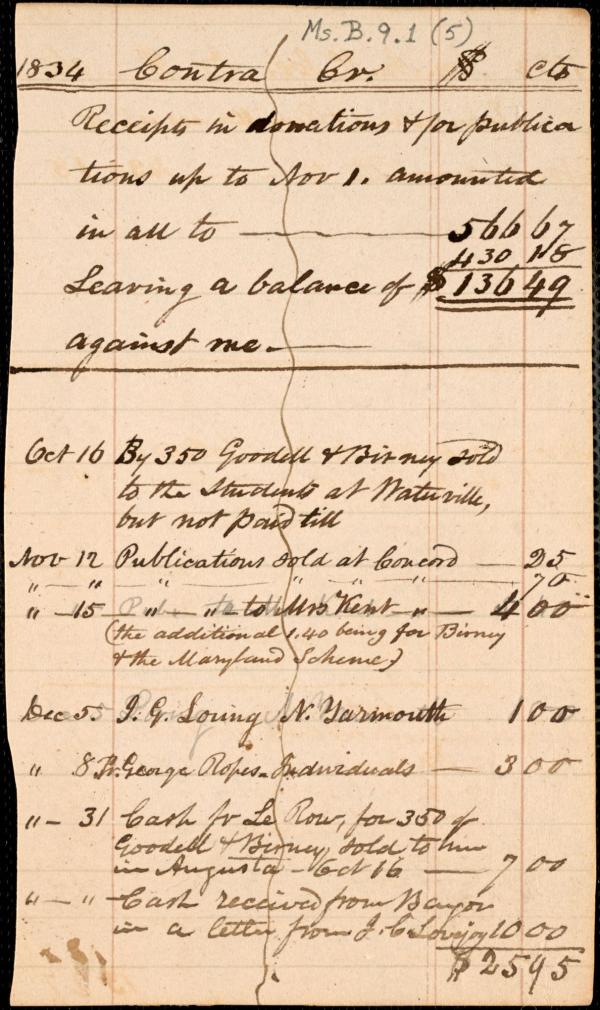 Ms. B. 9. 1 (5)
1834 Contra Cr. $ cts
Receipts in donations & for publica
tions up to Nov 1. amounted
in all to — 566 67
430 18
Leaving a balance of $ 136 49
against me. —
Oct 16 By 350 Goodell & Birney sold
to the Students at Waterville,
but not paid till
Nov 12 Publications sold at Concord — 25
" — " — " — " " " — 70
" — 15 " — " to Mrs Kent — " — 4 00
(the additional 1.40 being for Birney
& the Maryland Scheme)
Dec 5. J. G. Loring N. Yarmouth 1 00
" 8 George Ropes — Individuals — 3 00
" — 31 Cash fr Le Row, for 350 of
Goodell & Birney, sold to him
in Augusta — Oct 16 — 7 00
" — " — Cash received from Bangor
in a letter from J. C. Lovejoy 10 00
$ 25 95